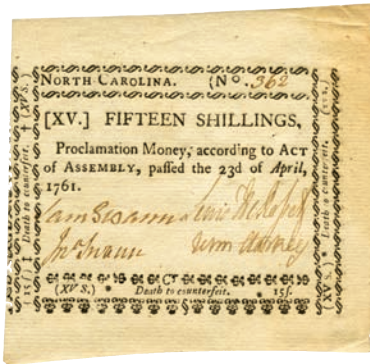 NORTH CAROLINA. (No. 362
[XV.] FIFTEEN SHILLINGS,
Proclamation Money, according to ACT
of ASSEMBLY, paſſed the 23d of April,
1761.
Jno Swann
CT
(XV S.) * Death to counterfeit. * 15ſ.
(15ſ) ‡ Death to counterfeit. † (XV S.)
(XV S.) * Death to counterfeit.